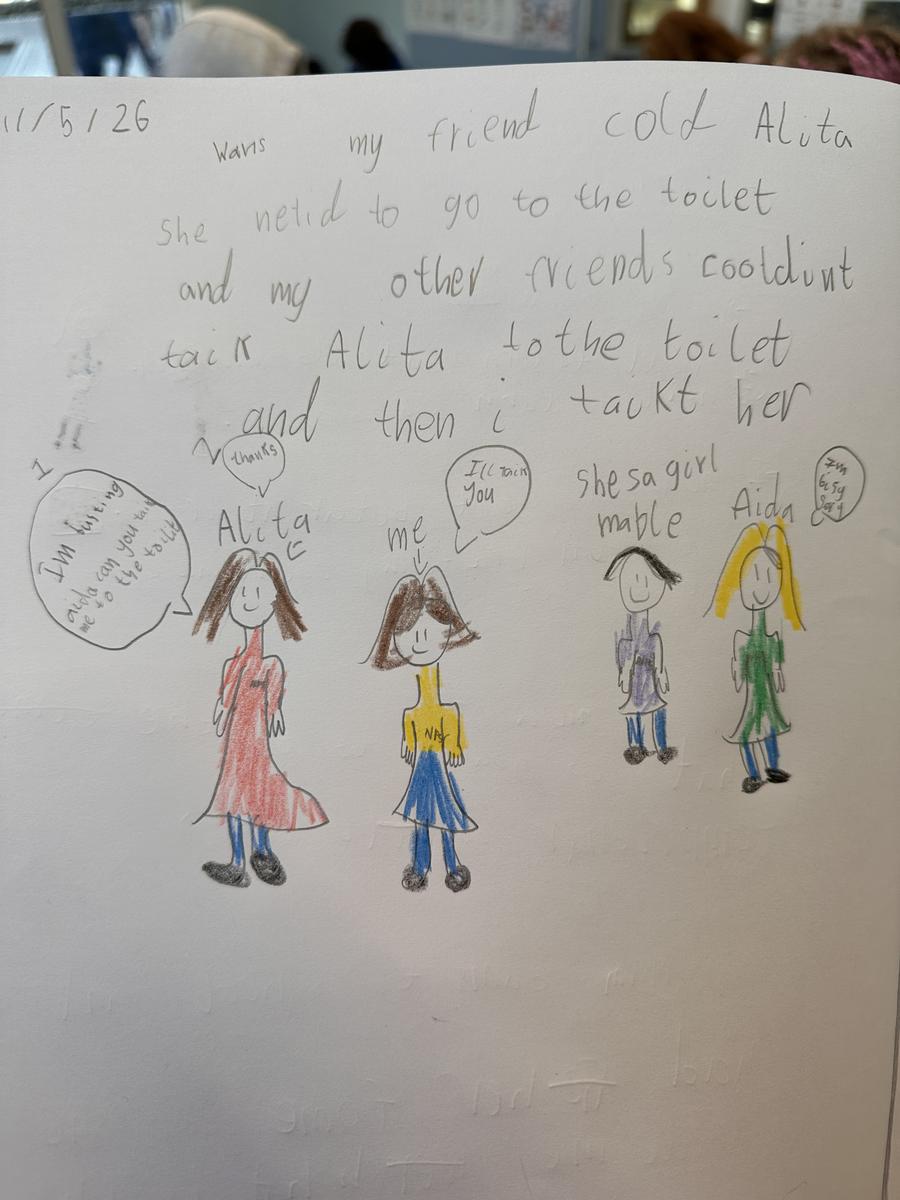 11/5/26
Wans my friend cold Alita
she netid to go to the toilet
and my other friends cooldint
taik Alita to the toilet
and then i taikt her
1
I'm busting
aida can you taik
me to the toilit
2
thanks
Alita
me
I'll taik
you
she sa girl
mable
Aida
I'm
bisy